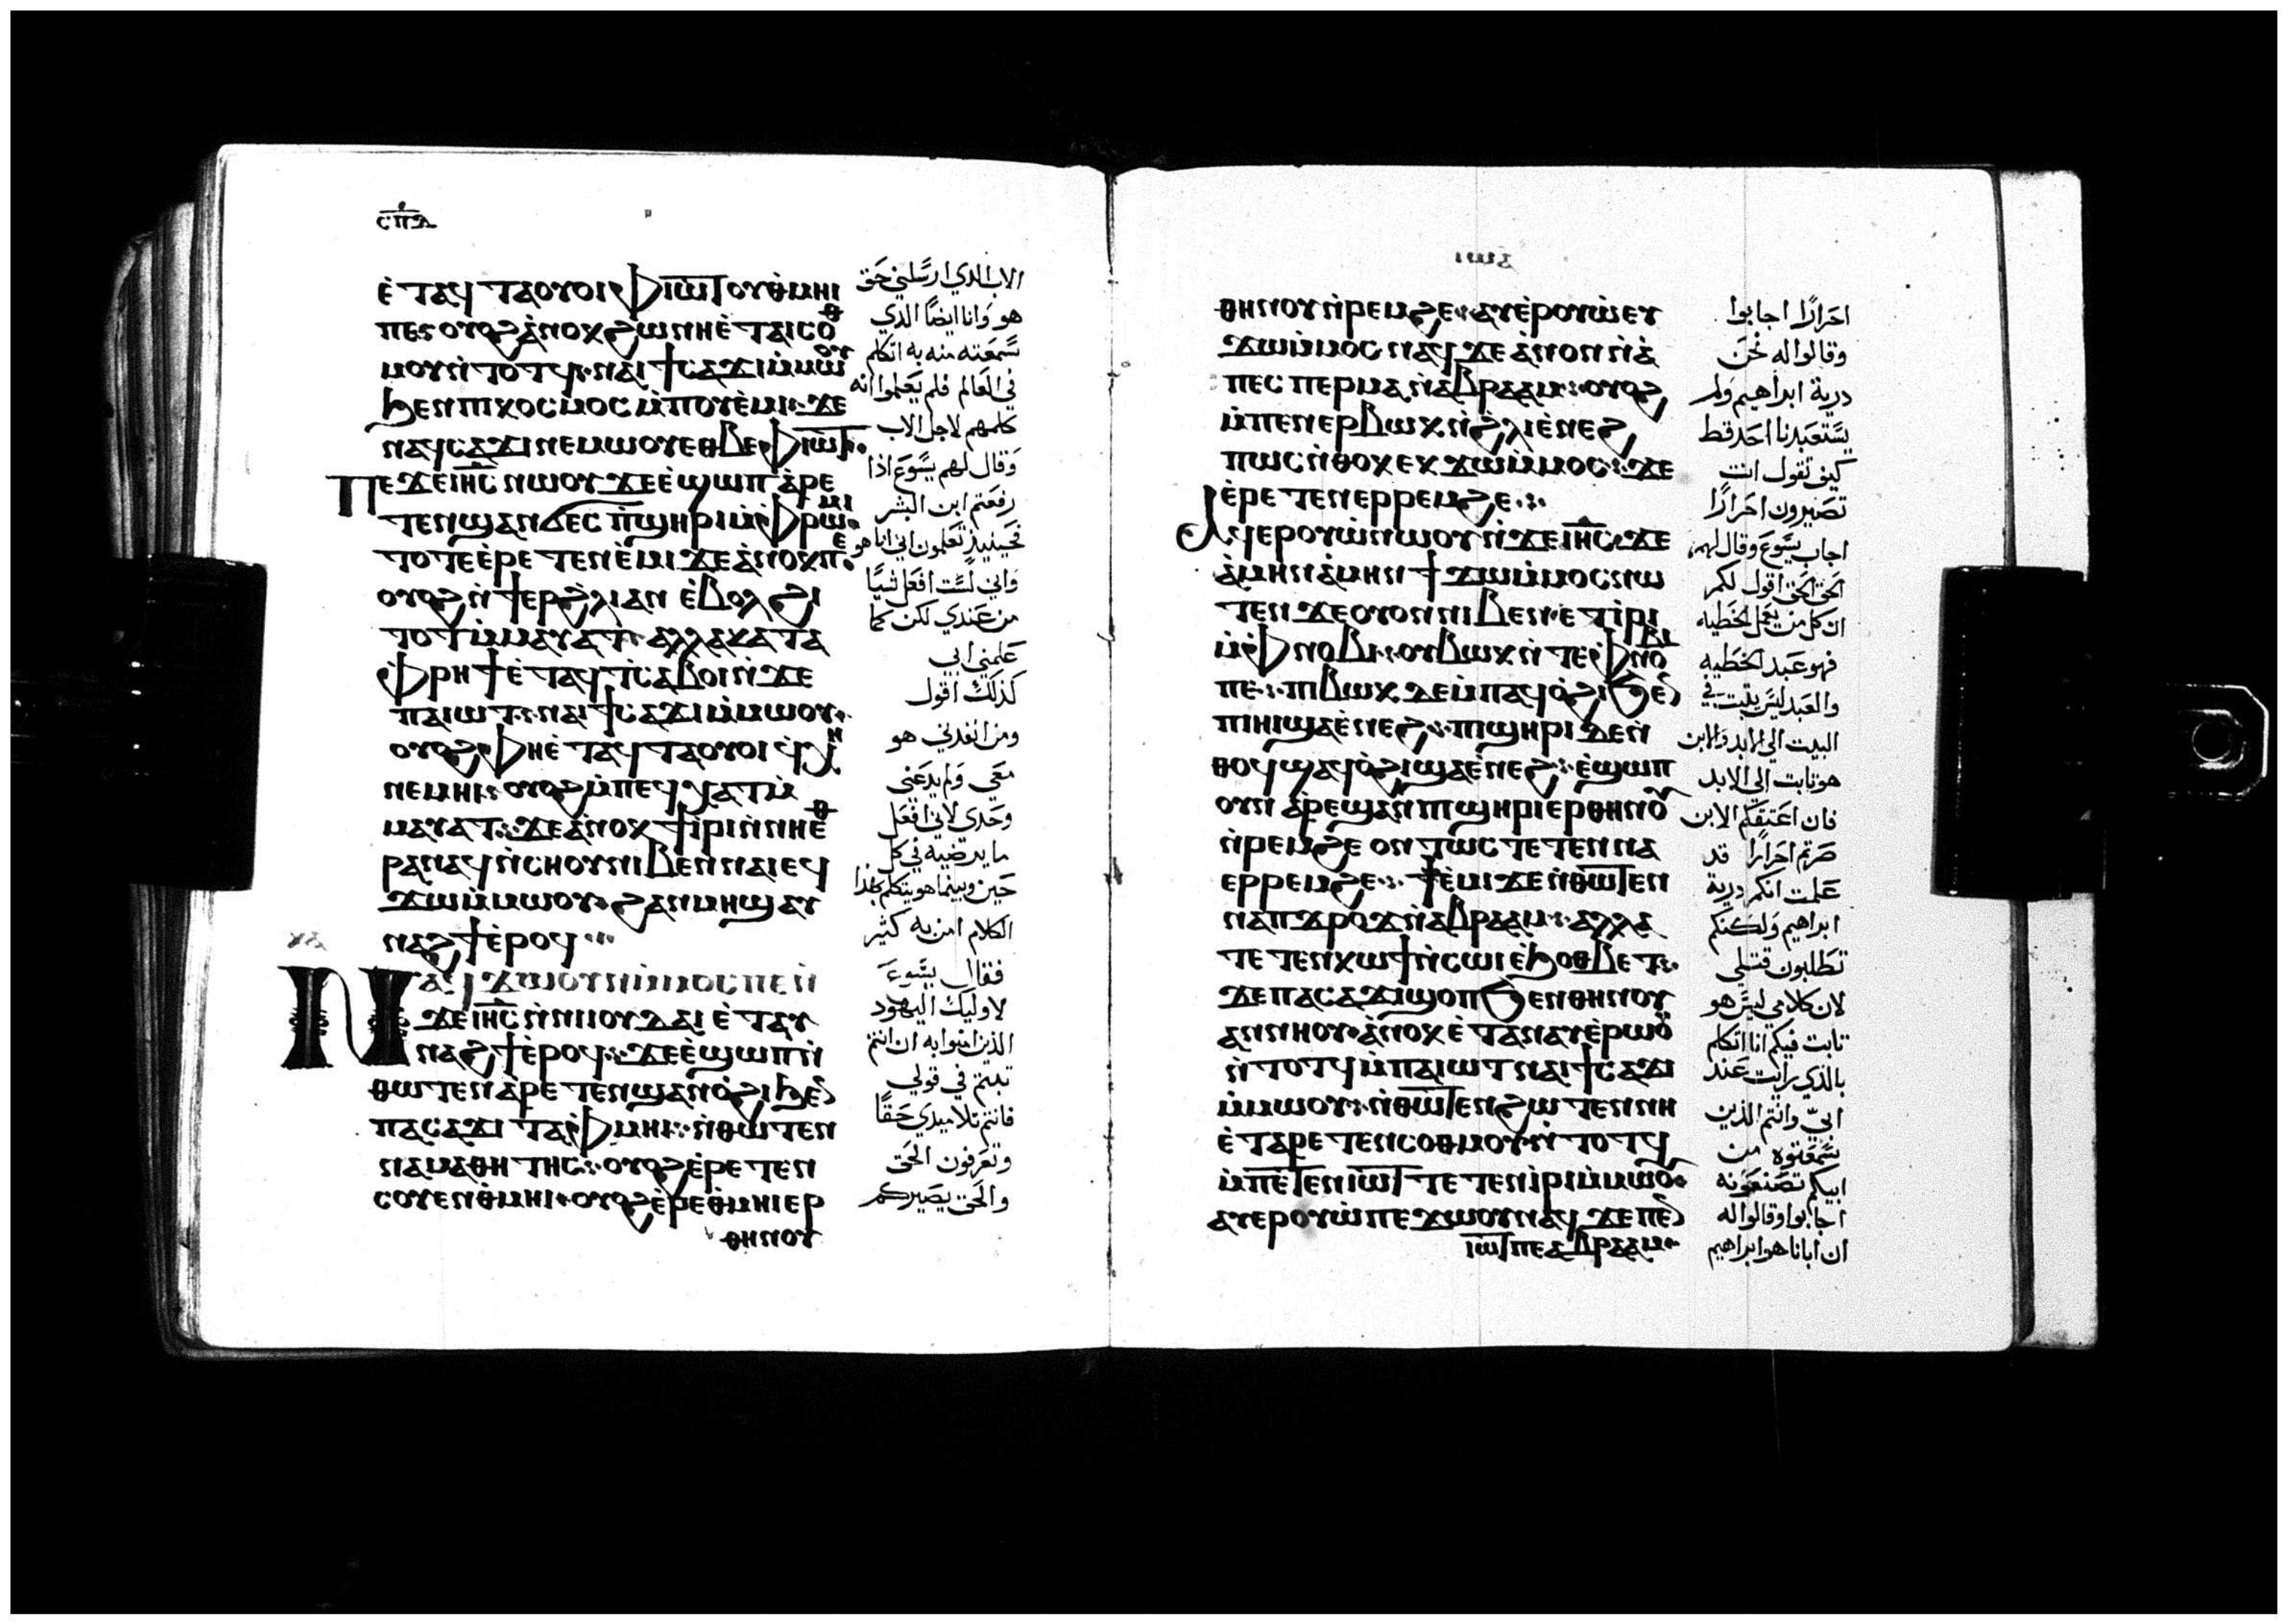 ⲥⲡⲇ
ⲉ̀ⲧⲁϥⲧⲁⲟⲩⲟⲓ ⲫⲓⲱⲧ ⲟⲩⲑⲙⲏⲓ
ⲡⲉ ⲟⲩⲟϩ ⲁ̀ⲛⲟⲕ ϩⲱ ⲛⲏ ⲉ̀ⲧⲁⲓⲥⲟⲑ
ⲙⲟⲩ ⲛ̀ⲧⲟⲧϥ ⲛⲁⲓ ϯⲥⲁϫⲓ ⲙ̀ⲙⲱⲟⲩ
ϧⲉⲛ ⲡⲓⲕⲟⲥⲙⲟⲥ ⲙ̀ⲡⲟⲩⲉ̀ⲙⲓ ϫⲉ
ⲛⲁϥⲥⲁϫⲓ ⲛⲉⲙⲱⲟⲩ ⲉⲑⲃⲉ ⲫⲓⲱⲧ
ⲡⲉϫⲉ ⲓⲏⲥ ⲛⲱⲟⲩ ϫⲉ ⲉ̀ϣⲱⲡ ⲁ̀ⲣⲉ
ⲧⲉⲛϣⲁⲛϭⲉⲥ ⲡ̀ϣⲏⲣⲓ ⲙ̀ⲫⲣⲱⲙⲓ
ⲧⲟⲧⲉ ⲉ̀ⲣⲉⲧⲉⲛⲉ̀ⲙⲓ ϫⲉ ⲁ̀ⲛⲟⲕ ⲡⲉ
ⲟⲩⲟϩ ⲛ̀ϯⲉⲣϩ̀ⲗⲓ ⲁⲛ ⲉ̀ⲃⲟⲗ ϩⲓ
ⲧⲟⲧ ⲙ̀ⲙⲁⲩⲁⲧ ⲁⲗⲗⲁ ⲕⲁⲧⲁ
ⲫⲣⲏϯ ⲉ̀ⲧⲁϥⲧⲥⲁⲃⲟⲓ ⲛ̀ϫⲉ
ⲡⲁⲓⲱⲧ ⲛⲁⲓ ϯⲥⲁϫⲓ ⲙ̀ⲙⲱⲟⲩ
ⲟⲩⲟϩ ⲫⲏ ⲉ̀ⲧⲁϥⲧⲁⲟⲩⲟⲓ ϥⲭⲏ
ⲛⲉⲙⲏⲓ ⲟⲩⲟϩ ⲙ̀ⲡⲉϥⲭⲁⲧ ⲙ̀
ⲙⲁⲩⲁⲧ ϫⲉ ⲁ̀ⲛⲟⲕ ϯⲓⲣⲓ ⲛ̀ⲛⲏ ⲉⲑ
ⲣⲁⲛⲁϥ ⲛ̀ⲥⲏⲟⲩ ⲛⲓⲃⲉⲛ ⲛⲁⲓ ⲉϥ
ϫⲱ ⲙ̀ⲙⲱⲟⲩ ϩⲁⲛⲙⲏϣ ⲁⲩ
ⲛⲁϩϯ ⲉ̀ⲣⲟϥ
ⲛⲁϥϫⲱ ⲟⲩⲛ ⲙ̀ⲙⲟⲥ ⲡⲉ ⲛ̀
ϫⲉ ⲓⲏⲥ ⲛ̀ⲛⲓⲓⲟⲩⲇⲁⲓ ⲉ̀ⲧⲁⲩ
ⲛⲁϩϯ ⲉ̀ⲣⲟϥ ϫⲉ ⲉ̀ϣⲱⲡ ⲛ̀
ⲑⲱⲧⲉⲛ ⲁ̀ⲣⲉⲧⲉⲛϣⲁⲛⲟ̀ϩⲓ ϧⲉⲛ
ⲡⲁⲥⲁϫⲓ ⲧⲁⲫⲙⲏⲓ ⲛ̀ⲑⲱⲧⲉⲛ
ⲛⲁⲙⲁⲑⲏⲧⲏⲥ ⲟⲩⲟϩ ⲉ̀ⲣⲉⲧⲉⲛ
ⲥⲟⲩⲉⲛ ⲑⲙⲏⲓ ⲟⲩⲟϩ ⲉ̀ⲣⲉ ⲑⲙⲏⲓ ⲉⲣ
ⲑⲏⲛⲟⲩ
الاب الذي ارسلني حق
هو وانا ايضا الذي
سمعته منه به اتكلم
في العالم فلم يعلموا انه
كلمهم لاجل الاب
وقال لهم يسوع اذا
رفعتم ابن البشر
فحينيذ تعلمون اني انا هو
واني لست افعل شيا
من عندي لكن كما
علمني ابي
كذلك اقول
ومن انفدني هو
معي ولم يدعني
وحدي لاني افعل
ما يرضيه في كل
حين وبينما هو يتكلم بهذا
الكلام امن به كثير
فقال يسوع
لاوليك اليهود
الذين امنوا به ان انتم
تبتم في قولي
فانتم تلاميدي حقا
وتعرفون الحق
والحق يصيركم
ⲑⲏⲛⲟⲩ ⲛ̀ⲣⲉⲙϩⲉ ⲁⲩⲉ̀ⲣⲟⲩⲱ̀ ⲉⲩ
ϫⲱ ⲙ̀ⲙⲟⲥ ⲛⲁϥ ϫⲉ ⲁ̀ⲛⲟⲛ ⲛ̀ⲁ̀
ⲡⲉⲥⲡⲉⲣⲙⲁ ⲛ̀ⲁⲃⲣⲁⲁⲙ ⲟⲩⲟϩ
ⲙ̀ⲡⲉⲛⲉⲣⲃⲱⲕ ⲛ̀ϩ̀ⲗⲓ ⲉ̀ⲛⲉϩ
ⲡⲱⲥ ⲛ̀ⲑⲟⲕ ⲉⲕϫⲱ ⲙ̀ⲙⲟⲥ ϫⲉ
ⲉ̀ⲣⲉⲧⲉⲛⲉⲣⲣⲉⲙϩⲉ
ⲁϥⲉⲣⲟⲩⲱ̀ ⲛⲱⲟⲩ ⲛ̀ϫⲉ ⲓⲏⲥ ϫⲉ
ⲁ̀ⲙⲏⲛ ⲁ̀ⲙⲏⲛ ϯϫⲱ ⲙ̀ⲙⲟⲥ ⲛⲱ
ⲧⲉⲛ ϫⲉ ⲟⲩⲟⲛ ⲛⲓⲃⲉⲛ ⲉ̀ⲧⲓ̀ⲣⲓ
ⲙ̀ⲫⲛⲟⲃⲓ ⲟⲩⲃⲱⲕ ⲛ̀ⲧⲉ ⲫⲛⲟⲃⲓ
ⲡⲉ ⲡⲓⲃⲱⲕ ⲇⲉ ⲙ̀ⲡⲁϥⲟ̀ϩⲓ ϧⲉⲛ
ⲡⲓⲏⲓ ϣⲁ ⲉ̀ⲛⲉϩ ⲡⲓϣⲏⲣⲓ ⲇⲉ ⲛ̀
ⲑⲟϥ ϣⲁϥⲟ̀ϩⲓ ϣⲁ ⲉ̀ⲛⲉϩ ⲉ̀ϣⲱⲡ
ⲟⲩⲛ ⲁ̀ⲣⲉϣⲁⲛ ⲡⲓϣⲏⲣⲓ ⲉⲣ ⲑⲏⲛⲟⲩ
ⲛ̀ⲣⲉⲙϩⲉ ⲟⲛⲧⲱⲥ ⲧⲉⲧⲉⲛⲛⲁ
ⲉⲣⲣⲉⲙϩⲉ ϯⲉ̀ⲙⲓ ϫⲉ ⲛ̀ⲑⲱⲧⲉⲛ
ⲛⲁⲡϫⲣⲟϫ ⲛ̀ⲁⲃⲣⲁⲁⲙ ⲁⲗⲗⲁ
ⲧⲉⲧⲉⲛⲕⲱϯ ⲛ̀ⲥⲱⲓ ⲉ̀ϧⲟⲑⲃⲉⲧ
ϫⲉ ⲡⲁⲥⲁϫⲓ ϣⲟⲡ ϧⲉⲛ ⲑⲏⲛⲟⲩ
ⲁⲛ ⲛⲏⲟⲩ ⲁ̀ⲛⲟⲕ ⲉ̀ⲧⲁⲛⲁⲩ ⲉ̀ⲣⲱⲟⲩ
ⲛ̀ⲧⲟⲧϥ ⲙ̀ⲡⲁⲓⲱⲧ ⲛⲁⲓ ϯⲥⲁϫⲓ
ⲙ̀ⲙⲱⲟⲩ ⲛ̀ⲑⲱⲧⲉⲛ ϩⲱⲧⲉⲛ ⲛⲏ
ⲉ̀ⲧⲁⲣⲉⲧⲉⲛⲥⲟⲑⲙⲟⲩ ⲛ̀ⲧⲟⲧϥ
ⲙ̀ⲡⲉⲧⲉⲛⲓⲱⲧ ⲧⲉⲧⲉⲛⲓ̀ⲣⲓ ⲙ̀ⲙⲱⲟⲩ
ⲁⲩⲉⲣⲟⲩⲱ̀ ⲡⲉϫⲱⲟⲩ ⲛⲁϥ ϫⲉ ⲡⲉⲛ
ⲓⲱⲧ ⲡⲉ ⲁⲃⲣⲁⲁⲙ
احرارا اجابوا
وقالوا له نحن
درية ابراهيم ولم
يستعبدنا احد قط
كيف تقول انت
تصيرون احرارا
اجاب يسوع وقال لهم
الحق الحق اقول لكم
ان كل من يعمل الخطيه
فهو عبد الخطيه
والعبد ليس يثبت في
البيت الي الابد والابن
هو تابت الي الابد
فان اعتقكم الابن
صرتم احرارا قد
علمت انكم درية
ابراهيم ولكنكم
تطلبون قتلي
لان كلامي ليس هو
تابت فيكم انا اتكلم
بالذي رايت عند
ابي وانتم الذين
سمعتوه من
ابيكم تصنعونه
اجابوا وقالوا له
ان ابانا هو ابراهيم